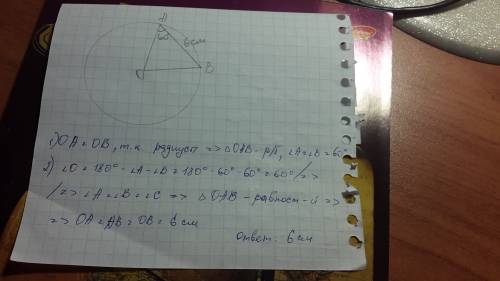 A
60
6 см
O
B
1) OA = OB, т.к. радиусы => △OAB - р/б, ∠A=∠B = 60°
2) ∠O = 180° - ∠A - ∠B = 180° - 60° - 60° = 60° / =>
/ => ∠A = ∠B = ∠C => △OAB - равност-й =>
=> OA = AB = OB = 6 см
ответ: 6 см